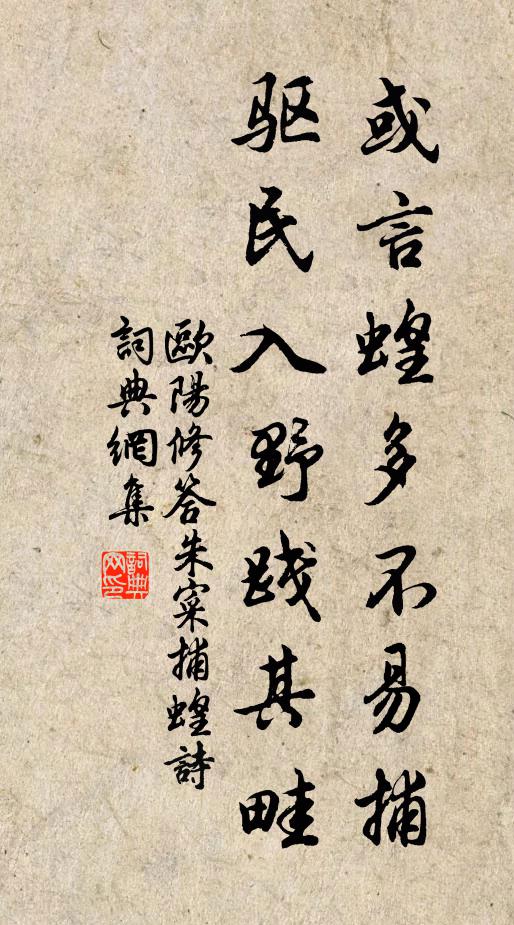 或言蝗多不易捕
驱民入野践其畦
歐陽修答朱寀捕蝗詩
詞典網集
詞典網印